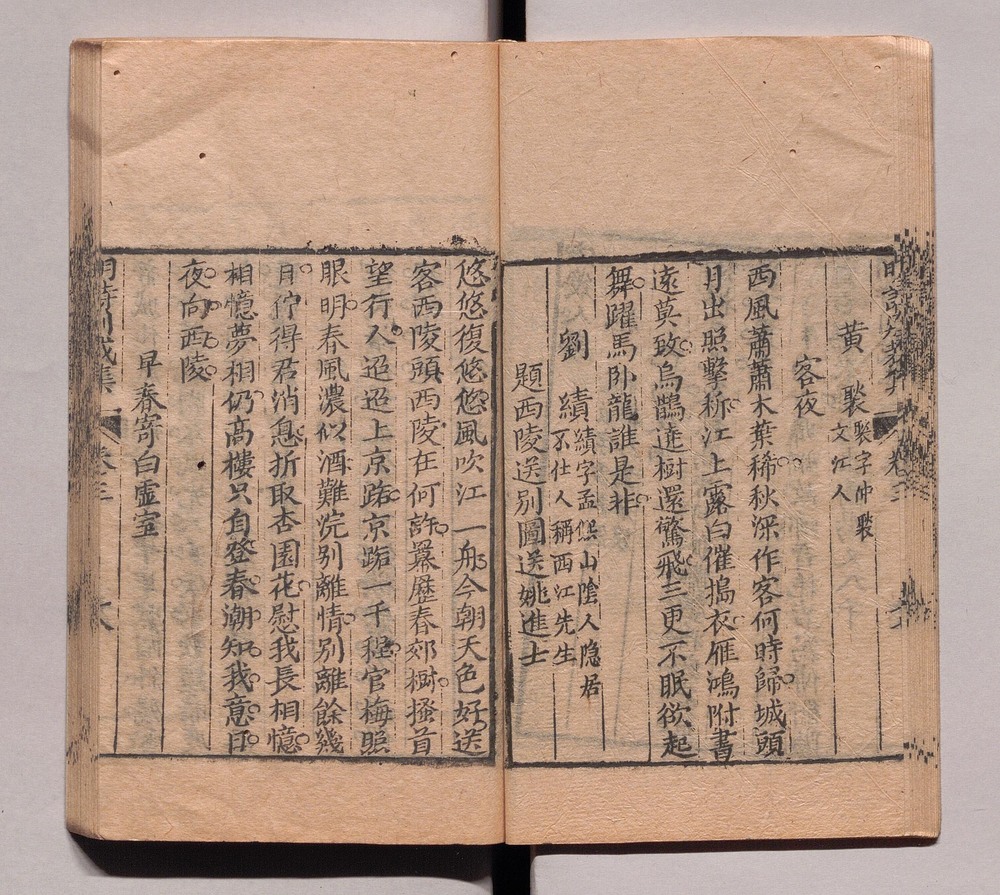 黃　聚 聚字仲聚
文江人
客夜
西風蕭蕭木葉稀秋深作客何時歸城頭
月出照擊柝江上露白催搗衣雁鴻附書
遠莫致烏鵲遶樹還驚飛三更不眠欲起
舞躍馬卧龍誰是非
劉　績 績字孟熙山陰人隐居
不仕人稱西江先生
題西陵送别圖送姚進士
悠悠復悠悠風吹江一舟今朝天色好送
客西陵頭西陵在何許羃歷春郊樹搔首
望行人迢迢上京路京路一千程官梅照
眼明春風濃似酒難浣别離情别離餘幾
月佇得君消息折取杏園花慰我長相憶
相憶夢相仍高樓只自登春潮知我意日
夜向西陵
早春寄白虚室
明詩别裁集 卷三 六